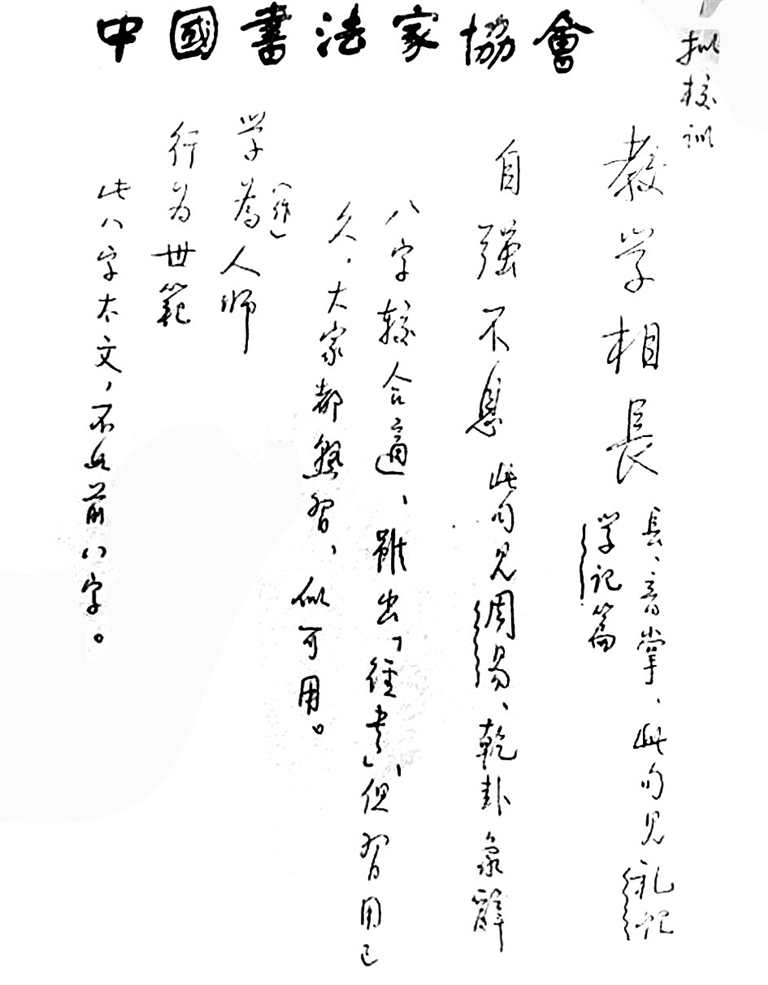 中國書法家協會
拟校训
教学相長 長、音掌、此句见礼记
学记篇
自强不息 此句见周易、乾卦象辭
八字较合適、雖出「经书」、但習用已
久，大家都熟習，似可用。
学為(作)人师
行为世範
此八字太文，不如前八字。